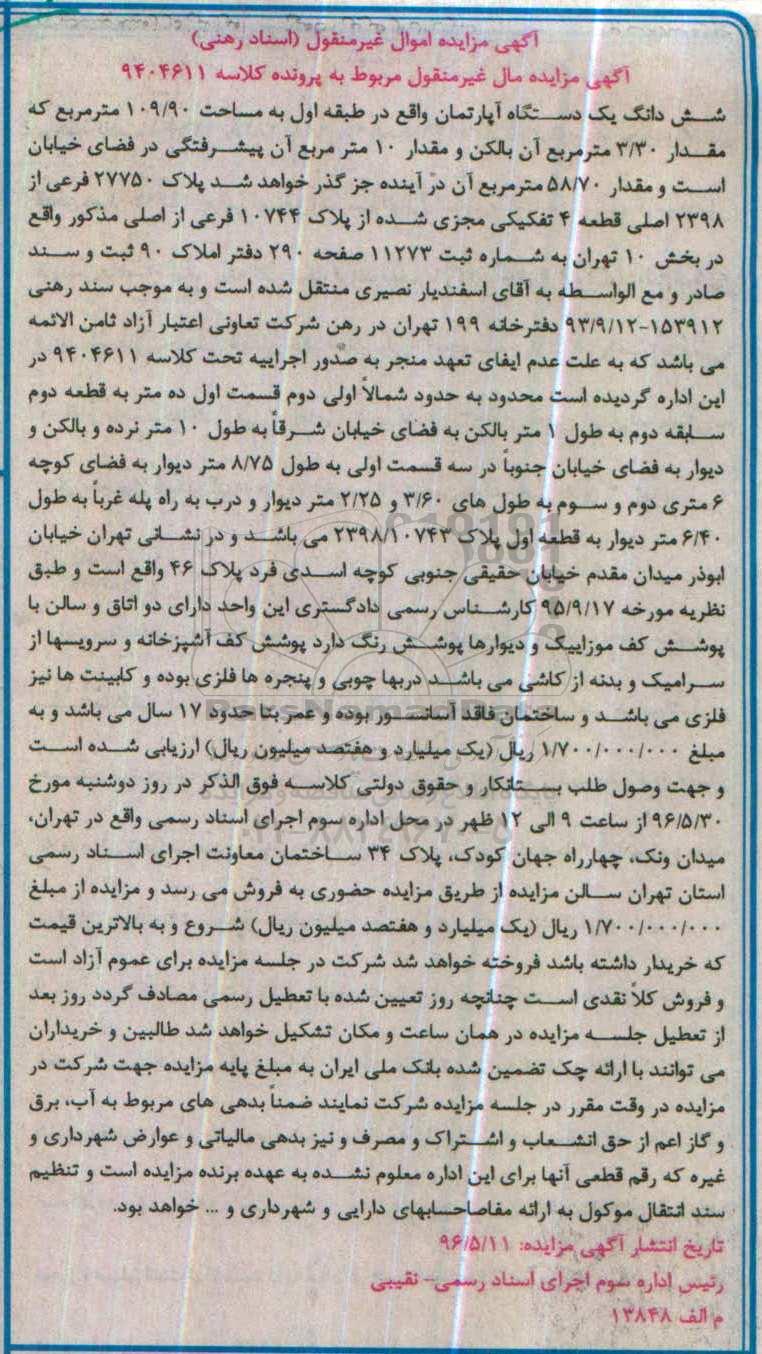 آگهی مزایده اموال غیرمنقول (اسناد رهنی)
آگهی مزایده مال غیرمنقول مربوط به پرونده کلاسه ۹۴۰۴۶۱۱
شش دانگ یک دستگاه آپارتمان واقع در طبقه اول به مساحت ۱۰۹/۹۰ مترمربع که
مقدار ۳/۳۰ مترمربع آن بالکن و مقدار ۱۰ متر مربع آن پیشرفتگی در فضای خیابان
است و مقدار ۵۸/۷۰ مترمربع آن در آینده جز گذر خواهد شد پلاک ۲۷۷۵۰ فرعی از
۲۳۹۸ اصلی قطعه ۴ تفکیکی مجزی شده از پلاک ۱۰۷۴۴ فرعی از اصلی مذکور واقع
در بخش ۱۰ تهران به شماره ثبت ۱۱۲۷۳ صفحه ۲۹۰ دفتر املاک ۹۰ ثبت و سند
صادر و مع الواسطه به آقای اسفندیار نصیری منتقل شده است و به موجب سند رهنی
۱۵۳۹۱۲-۹۳/۹/۱۲ دفترخانه ۱۹۹ تهران در رهن شرکت تعاونی اعتبار آزاد ثامن الائمه
می باشد که به علت عدم ایفای تعهد منجر به صدور اجراییه تحت کلاسه ۹۴۰۴۶۱۱ در
این اداره گردیده است محدود به حدود شمالاً اولی دوم قسمت اول ده متر به قطعه دوم
سابقه دوم به طول ۱ متر بالکن به فضای خیابان شرقاً به طول ۱۰ متر نرده و بالکن و
دیوار به فضای خیابان جنوباً در سه قسمت اولی به طول ۸/۷۵ متر دیوار به فضای کوچه
۶ متری دوم و سوم به طول های ۳/۶۰ و ۲/۲۵ متر دیوار و درب به راه پله غرباً به طول
۶/۴۰ متر دیوار به قطعه اول پلاک ۲۳۹۸/۱۰۷۴۳ می باشد و در نشانی تهران خیابان
ابوذر میدان مقدم خیابان حقیقی جنوبی کوچه اسدی فرد پلاک ۴۶ واقع است و طبق
نظریه مورخه ۹۵/۹/۱۷ کارشناس رسمی دادگستری این واحد دارای دو اتاق و سالن با
پوشش کف موزاییک و دیوارها پوشش رنگ دارد پوشش کف آشپزخانه و سرویسها از
سرامیک و بدنه از کاشی می باشد دربها چوبی و پنجره ها فلزی بوده و کابینت ها نیز
فلزی می باشد و ساختمان فاقد آسانسور بوده و عمر بنا حدود ۱۷ سال می باشد و به
مبلغ ۱/۷۰۰/۰۰۰/۰۰۰ ریال (یک میلیارد و هفتصد میلیون ریال) ارزیابی شده است
و جهت وصول طلب بستانکار و حقوق دولتی کلاسه فوق الذکر در روز دوشنبه مورخ
۹۶/۵/۳۰ از ساعت ۹ الی ۱۲ ظهر در محل اداره سوم اجرای اسناد رسمی واقع در تهران،
میدان ونک، چهارراه جهان کودک، پلاک ۳۴ ساختمان معاونت اجرای اسناد رسمی
استان تهران سالن مزایده از طریق مزایده حضوری به فروش می رسد و مزایده از مبلغ
۱/۷۰۰/۰۰۰/۰۰۰ ریال (یک میلیارد و هفتصد میلیون ریال) شروع و به بالاترین قیمت
که خریدار داشته باشد فروخته خواهد شد شرکت در جلسه مزایده برای عموم آزاد است
و فروش کلاً نقدی است چنانچه روز تعیین شده با تعطیل رسمی مصادف گردد روز بعد
از تعطیل جلسه مزایده در همان ساعت و مکان تشکیل خواهد شد طالبین و خریداران
می توانند با ارائه چک تضمین شده بانک ملی ایران به مبلغ پایه مزایده جهت شرکت در
مزایده در وقت مقرر در جلسه مزایده شرکت نمایند ضمناً بدهی های مربوط به آب، برق
و گاز اعم از حق انشعاب و اشتراک و مصرف و نیز بدهی مالیاتی و عوارض شهرداری و
غیره که رقم قطعی آنها برای این اداره معلوم نشده به عهده برنده مزایده است و تنظیم
سند انتقال موکول به ارائه مفاصاحسابهای دارایی و شهرداری و ... خواهد بود.
تاریخ انتشار آگهی مزایده: ۹۶/۵/۱۱
رئیس اداره سوم اجرای اسناد رسمی- نقیبی
م الف ۱۳۸۴۸